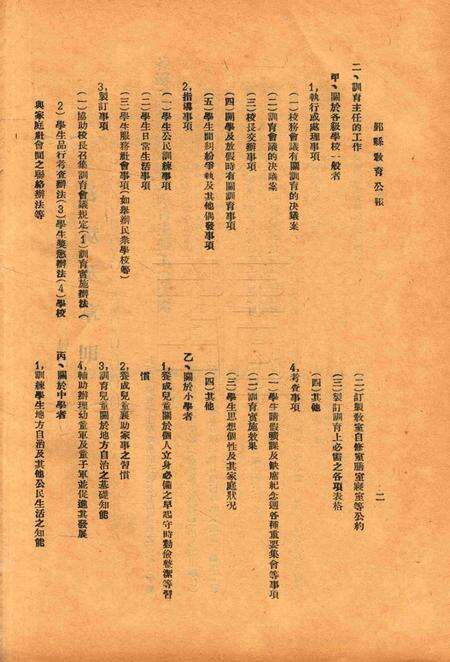 鄞縣教育公報
二
二、訓育主任的工作
甲、關於各級學校一般者
1,執行或處理事項
(一)校務會議有關訓育的決議案
(二)訓育會議的決議案
(三)校長交辦事項
(四)開學及放假時有關訓育事項
(五)學生間糾紛爭執及其他偶發事項
2,指導事項
(一)學生公民訓練事項
(二)學生日常生活事項
(三)學生服務社會事項(如舉辦民衆學校等)
3,製訂事項
(一)協助校長召集訓育會議規定(1)訓育實施辦法(
2)學生品行考查辦法(3)學生獎懲辦法(4)學校
與家庭社會間之聯絡辦法等
(二)訂製教室自修室膳室寢室等公約
(三)製訂訓育上必需之各項表格
(四)其他
4,考查事項
(一)學生請假曠課及缺席紀念週各種重要集會等事項
(二)訓育實施效果
(三)學生思想個性及其家庭狀況
(四)其他
乙、關於小學者
1,養成兒童關於個人立身必備之早起守時勤儉整潔等習
慣
2,養成兒童襄助家事之習慣
3,訓育兒童關於地方自治之基礎知能
4,輔助辦理幼童軍及童子軍並促進其發展
丙、關於中學者
1,訓練學生地方自治及其他公民生活之知能